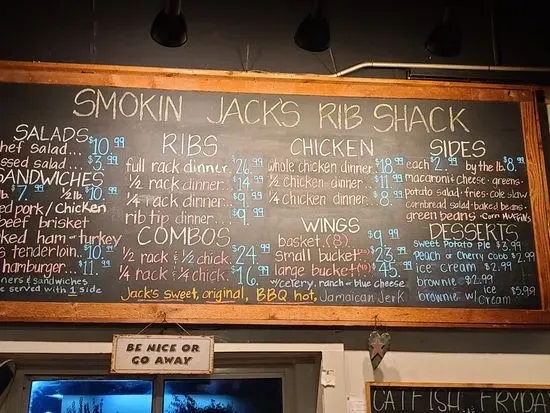 SMOKIN JACK'S RIB SHACK
SALADS
hef salad... $10.99
ssed salad.... $3.99
SANDWICHES
lb. $7.99 ½ lb. $10.99
ed pork/chicken
beef brisket
ked ham - turkey
s tenderloin... $10.99
hamburger... $11.99
ners & sandwiches
e served with 1 side
RIBS
full rack dinner. $26.99
½ rack dinner.. $14.99
¼ rack dinner... $9.99
rib tip dinner... $9.99
COMBOS
½ rack & ½ chick. $24.99
¼ rack & ¼ chick. $16.99
CHICKEN
whole chicken dinner.. $18.99
½ chicken dinner... $11.99
¼ chicken dinner... $8.99
WINGS
basket.. (8)
small bucket $23.99
large bucket $45.99
w/celery, ranch or blue cheese
Jack's sweet, original, BBQ hot, Jamaican Jerk
SIDES
each $2.99 by the lb. $8.99
macaroni & cheese - greens -
potato salad - fries - cole slaw
cornbread salad - baked beans -
green beans - corn muffins
DESSERTS
sweet potato pie $2.99
Peach or Cherry Cobb $2.99
ice cream $2.99
brownie $2.99
brownie w/ ice cream $5.99
BE NICE OR
GO AWAY
CATFISH FRYDA